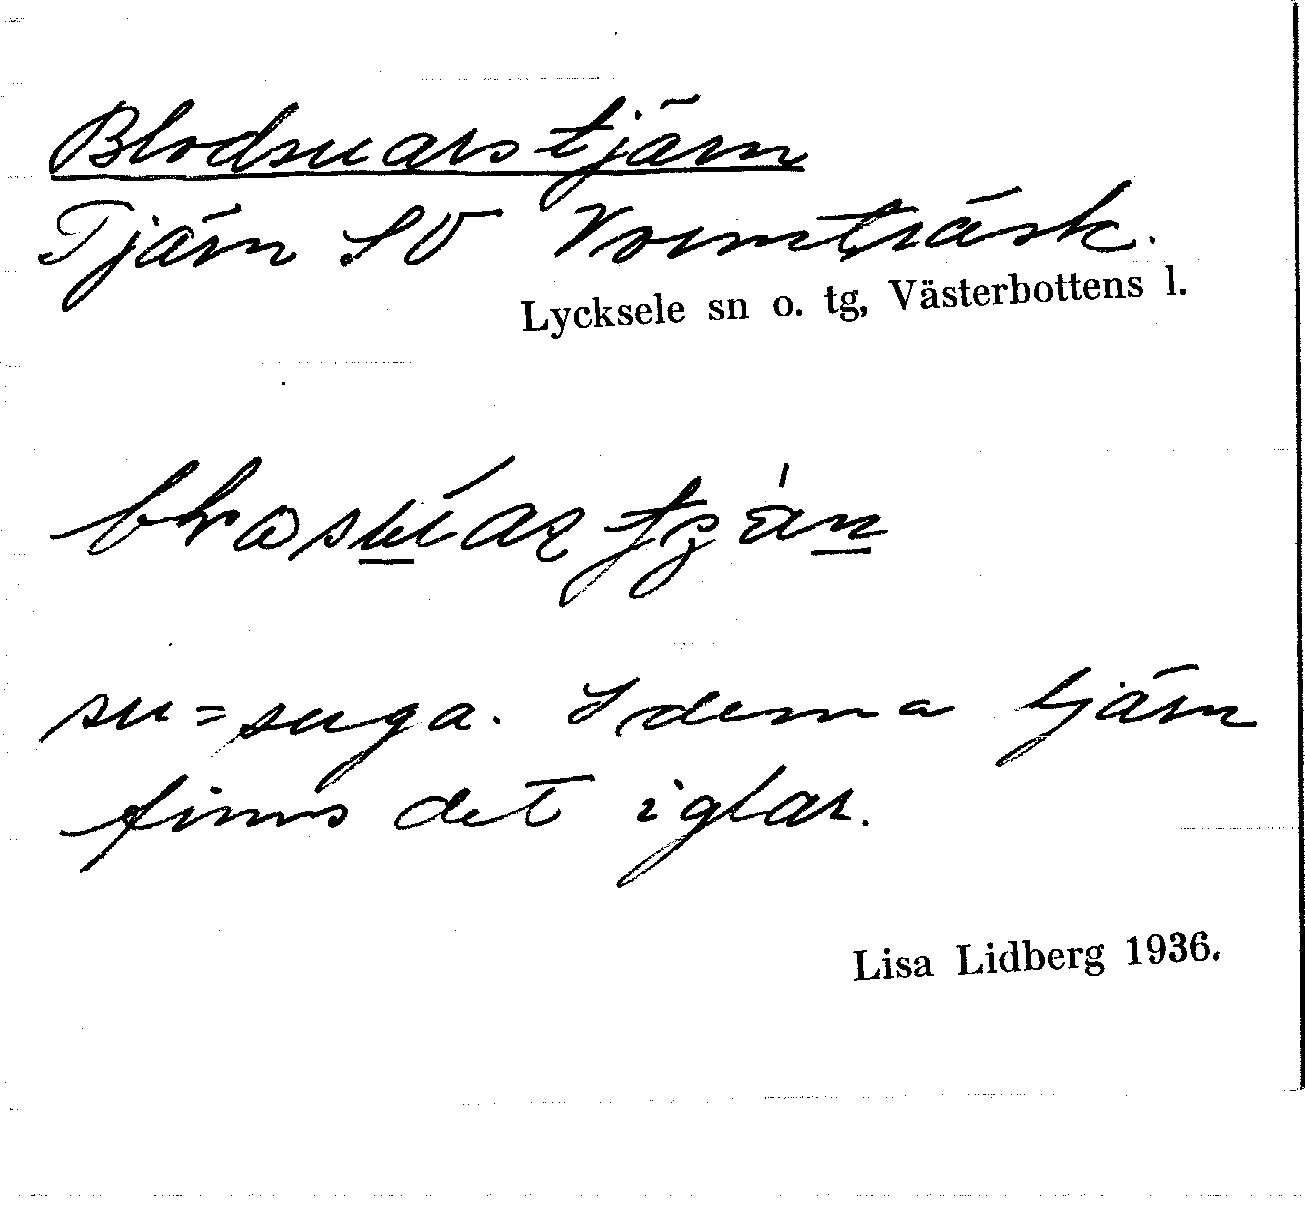 Blodsuarstjärn
Tjärn SV Vormträsk.
Lycksele sn o. tg, Västerbottens l.
su = suga. I denna tjärn
finns det iglar.
Lisa Lidberg 1936.